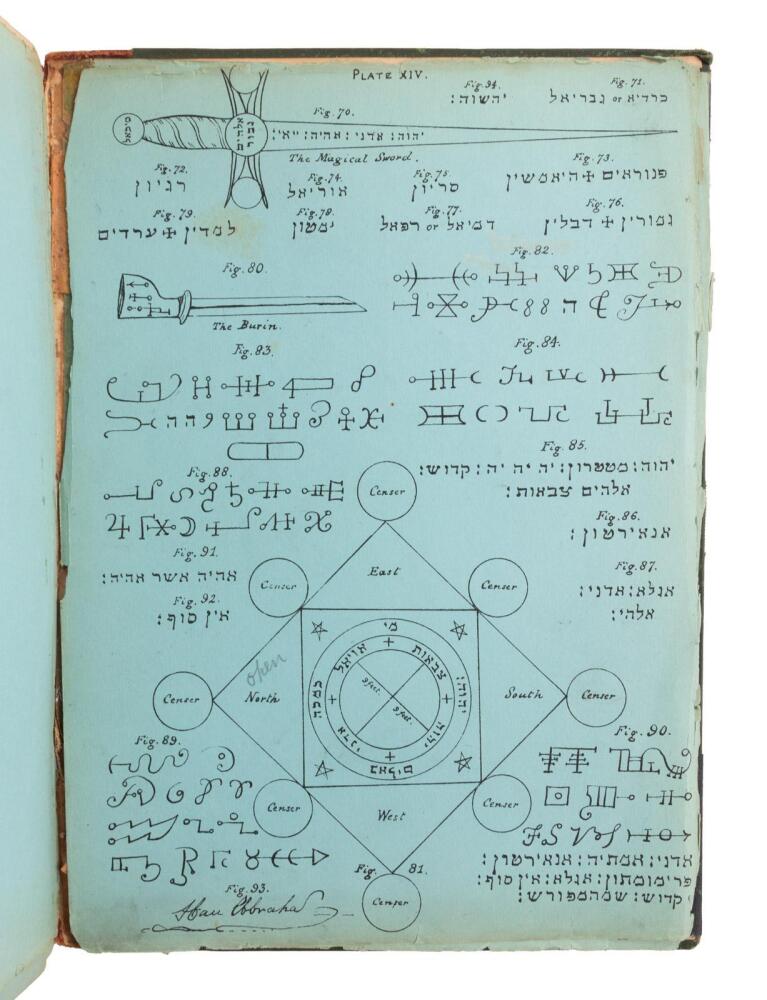 PLATE XIV.
Fig. 94.
יהשוה:
Fig. 71.
כרדיא or גבריאל
Fig. 70.
יהוה: אדני: אהיה: ייאי:
The Magical Sword.
Fig. 72.
רגיון
Fig. 74.
אוריאל
Fig. 75.
סריון
Fig. 73.
פנוראים ✠ היאמשין
Fig. 79.
למדין ✠ ערדים
Fig. 78.
ימטון
Fig. 77.
דמיאל or רפאל
Fig. 76.
גמורין ✠ דבלין
Fig. 80.
The Burin.
Fig. 82.
Fig. 83.
Fig. 84.
Fig. 85.
יהוה: מטטרון: יה יה יה: קדוש:
אלהים צבאות:
Fig. 88.
Fig. 86.
אנאירטון:
Fig. 91.
אהיה אשר אהיה:
Fig. 87.
אגלא: אדני:
אלהי:
Fig. 92.
אין סוף:
Censer
Censer
East
Censer
open
North
South
Censer
Censer
צבאות
יהוה:
יהוה
9 feet.
9 feet.
Fig. 89.
Fig. 90.
Censer
West
Censer
אדני: אמתיה: אנאירטון:
פרימומתון: אגלא: אין סוף:
קדוש: שמהמפורש:
Fig. 81.
Censer
Fig. 93.